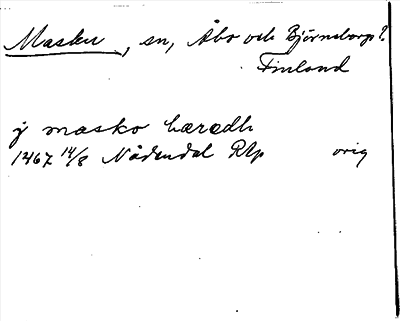 Masku, sn, Åbo och Björneborgs l.
Finland
j masko hæredh
1467 14/8 Nådendal RAp orig